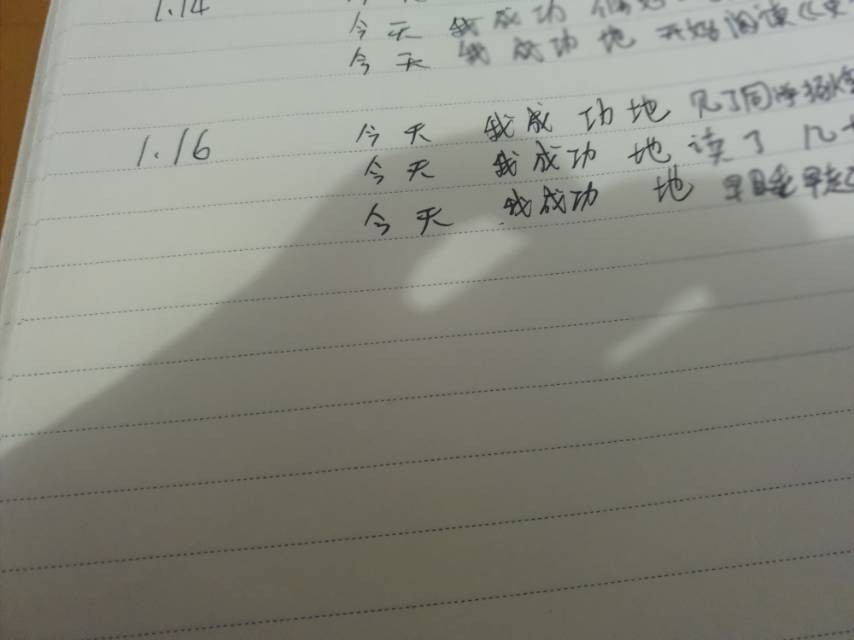 1.14
今天我成功
今天我成功地开始阅读《
1.16 今天我成功地见了同学
今天我成功地读了几
今天我成功地早睡早起